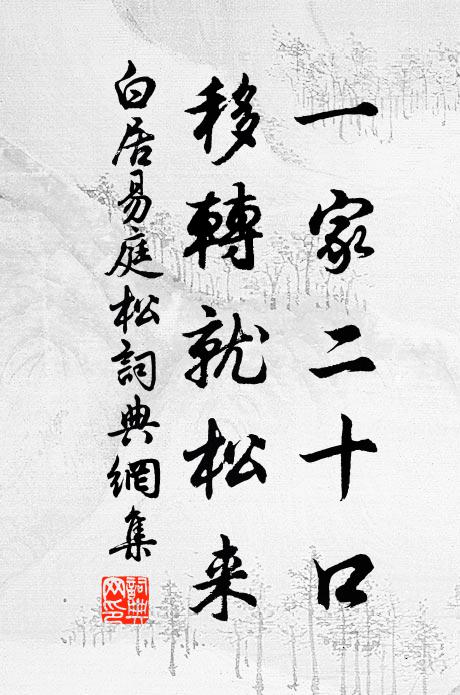 一家二十口
移轉就松来
白居易庭松詞典網集
詞典
网印